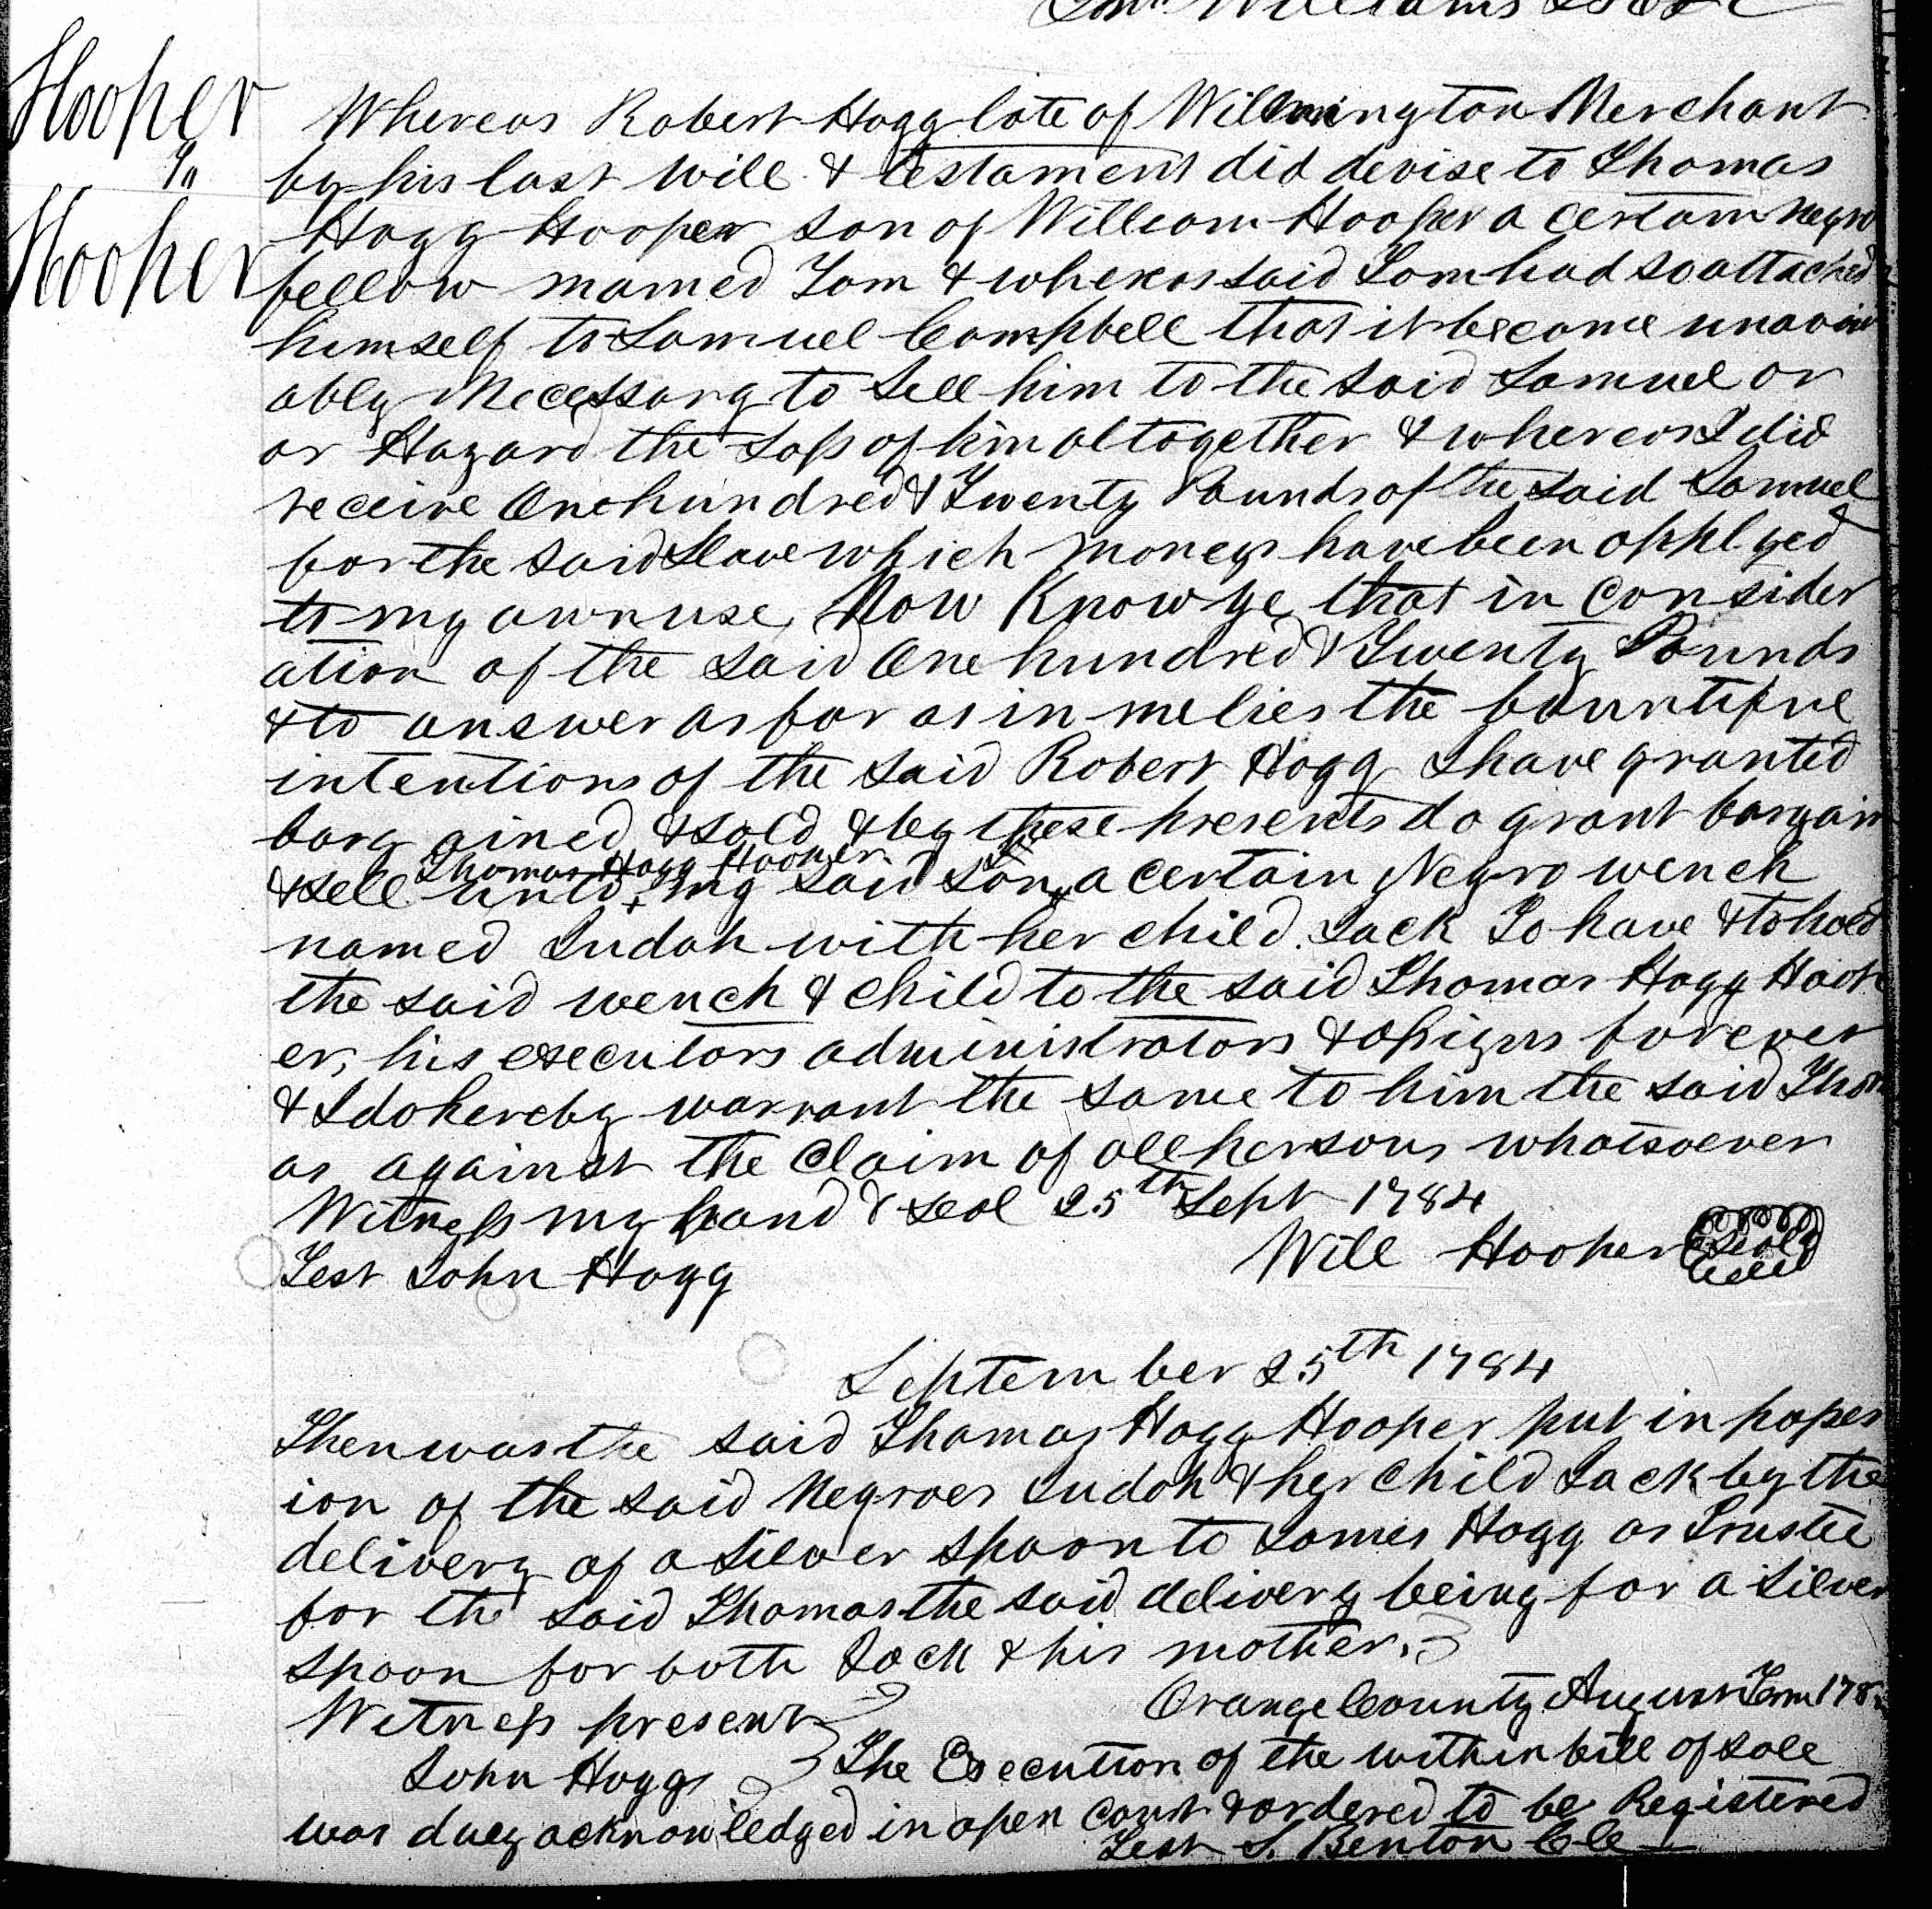 Williams
Hooper
To
Hooper
Whereas Robert Hogg late of Wilmington Merchant
by his last will & testament did devise to Thomas
Hogg Hooper son of William Hooper a certain negro
fellow named Tom & whereas said Tom had so attached
himself to Samuel Campbell that it become unavoid
ably Necessary to Sell him to the said Samuel or
or Hazard the Loss of him altogether & whereas I did
receive One hundred & Twenty Pounds of the said Samuel
for the said Slave which moneys have been applyed
to my own use, Now Know ye that in Consider
ation of the said One hundred & Twenty Pounds
& to answer as far as in me lies the bountiful
intentions of the said Robert Hogg I have granted
barg ained & sold & by these presents do grant bargain
Thomas Hogg Hooper
& sell unto my said Son, a certain Negro wench
named Judah with her child Jack To have & to hold
the said wench & child to the said Thomas Hogg Hoop
er, his executors administrators & assigns forever
& I do hereby warrant the same to him the said Thom
as against the Claim of all persons whatsoever
Witness my hand & seal 25th Sept 1784
Will Hooper (Seal)
Test John Hogg
September 25th 1784
Then was the said Thomas Hogg Hooper put in posses
ion of the said Negroes Judah & her Child Jack by the
delivery of a Silver Spoon to James Hogg as Trustee
for the said Thomas the said delivery being for a Silver
spoon for both Jack & his mother.
Witness present
Orange County August Term 178
John Hogg
The Execution of the within bill of sale
was duly acknowledged in open court & ordered to be Registered
Test J. Benton Clc